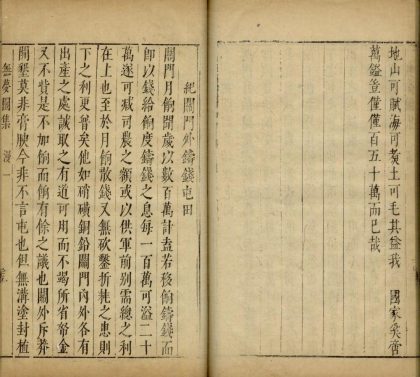 地山可賦海可煑土可毛其益我　國家奚啻
萬鎰豈僅僅百五十萬而已哉
紀關門外鑄錢屯田
關門月餉閱歲以數百萬計盍若移餉鑄錢而
即以錢給餉度鑄錢之息每一百萬可溢二十
萬遂可減司農之額或以供軍前别需總之利
在上也至於月餉散錢又無砍鑿折耗之患則
下之利更普矣他如硝磺銅鉛關門內外各有
出產之處誠取之有道可用而不竭所省帑金
又不貲是不加餉而餉有餘之議也關外斥莽
閒墾莫非膏腴今非不言屯也但無溝塗封植
無夢園集　漫一